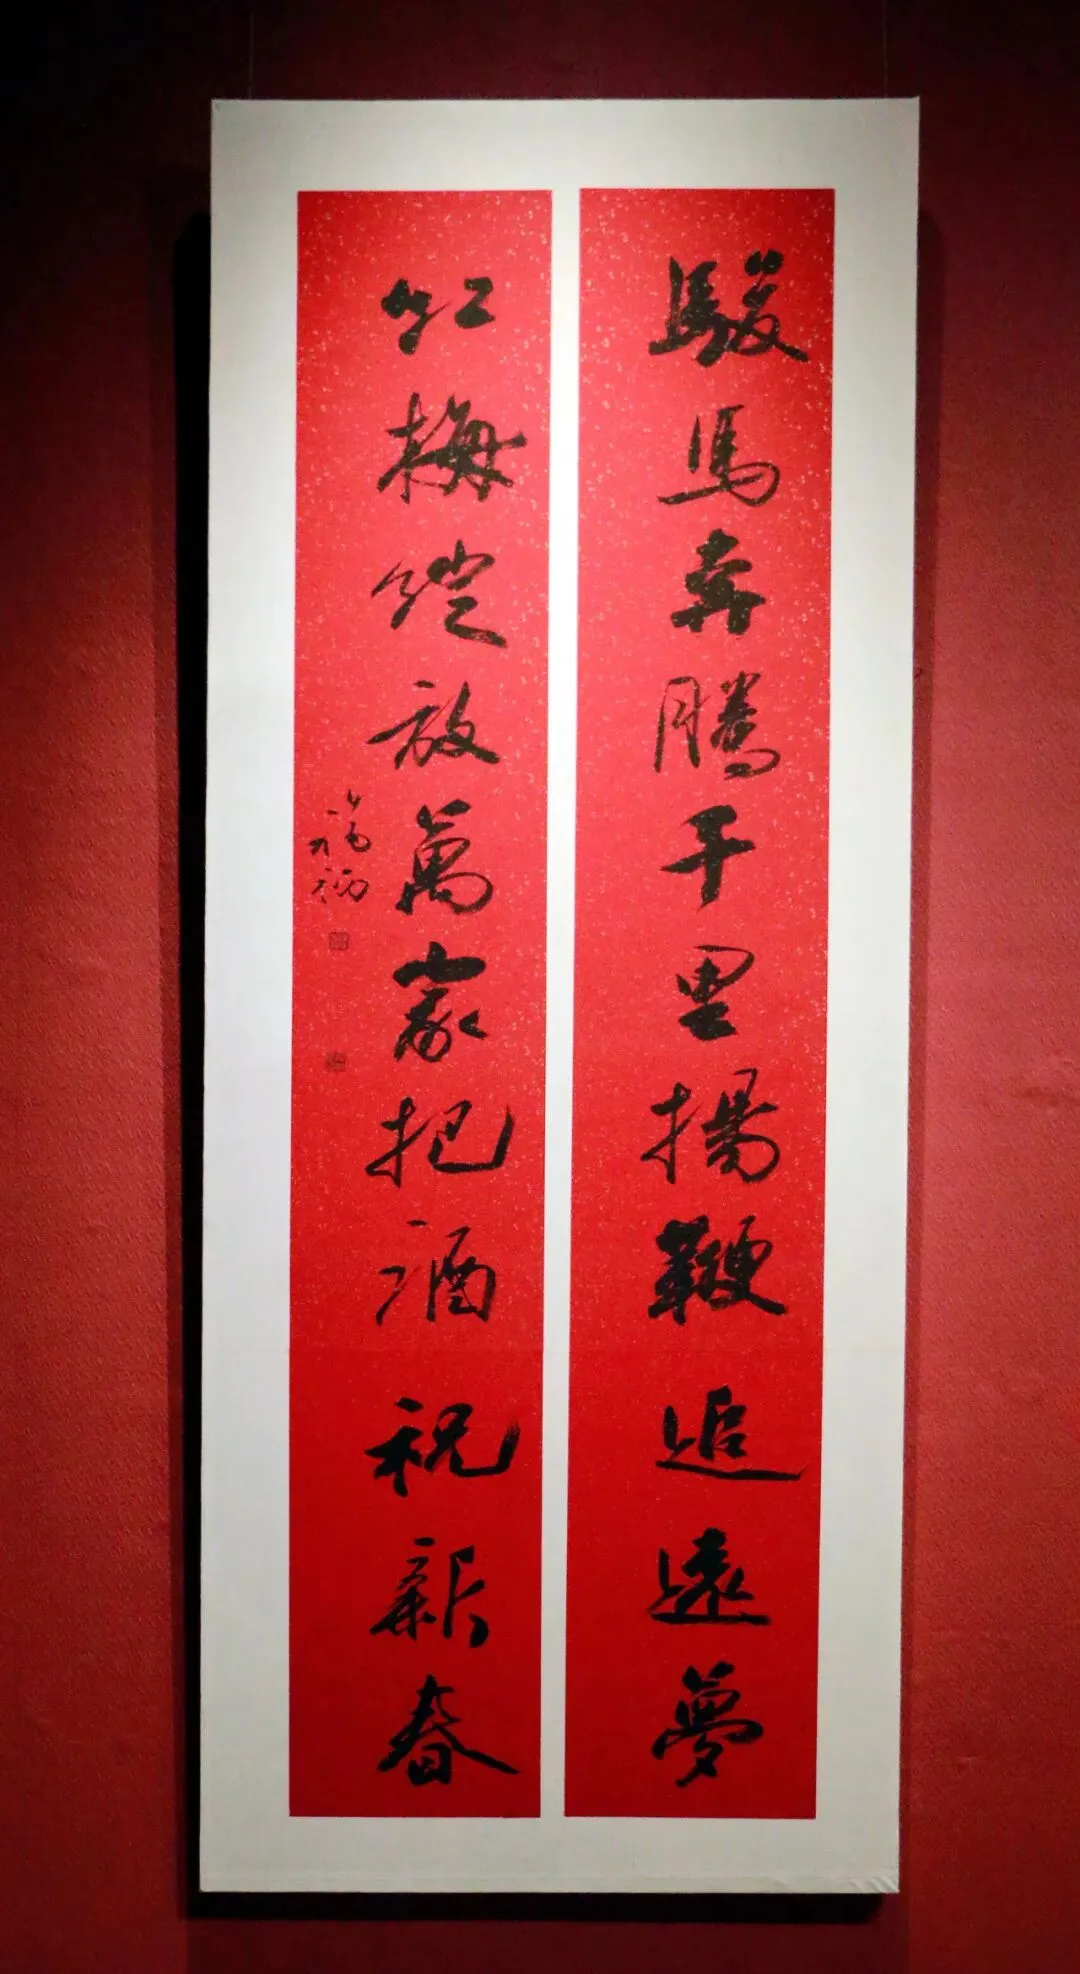 駿馬奔騰千里揚鞭追遠夢
紅梅綻放萬家把酒祝新春